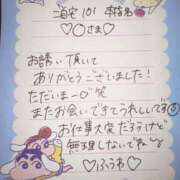 ご自宅 101 本指名
♡〇さま♡
お誘い頂いて
ありがとうございました!
ただいまーの笑
またお会いできてうれしいです
お仕事大変だろうけど
無理しないでねー
♡ふうわ♡